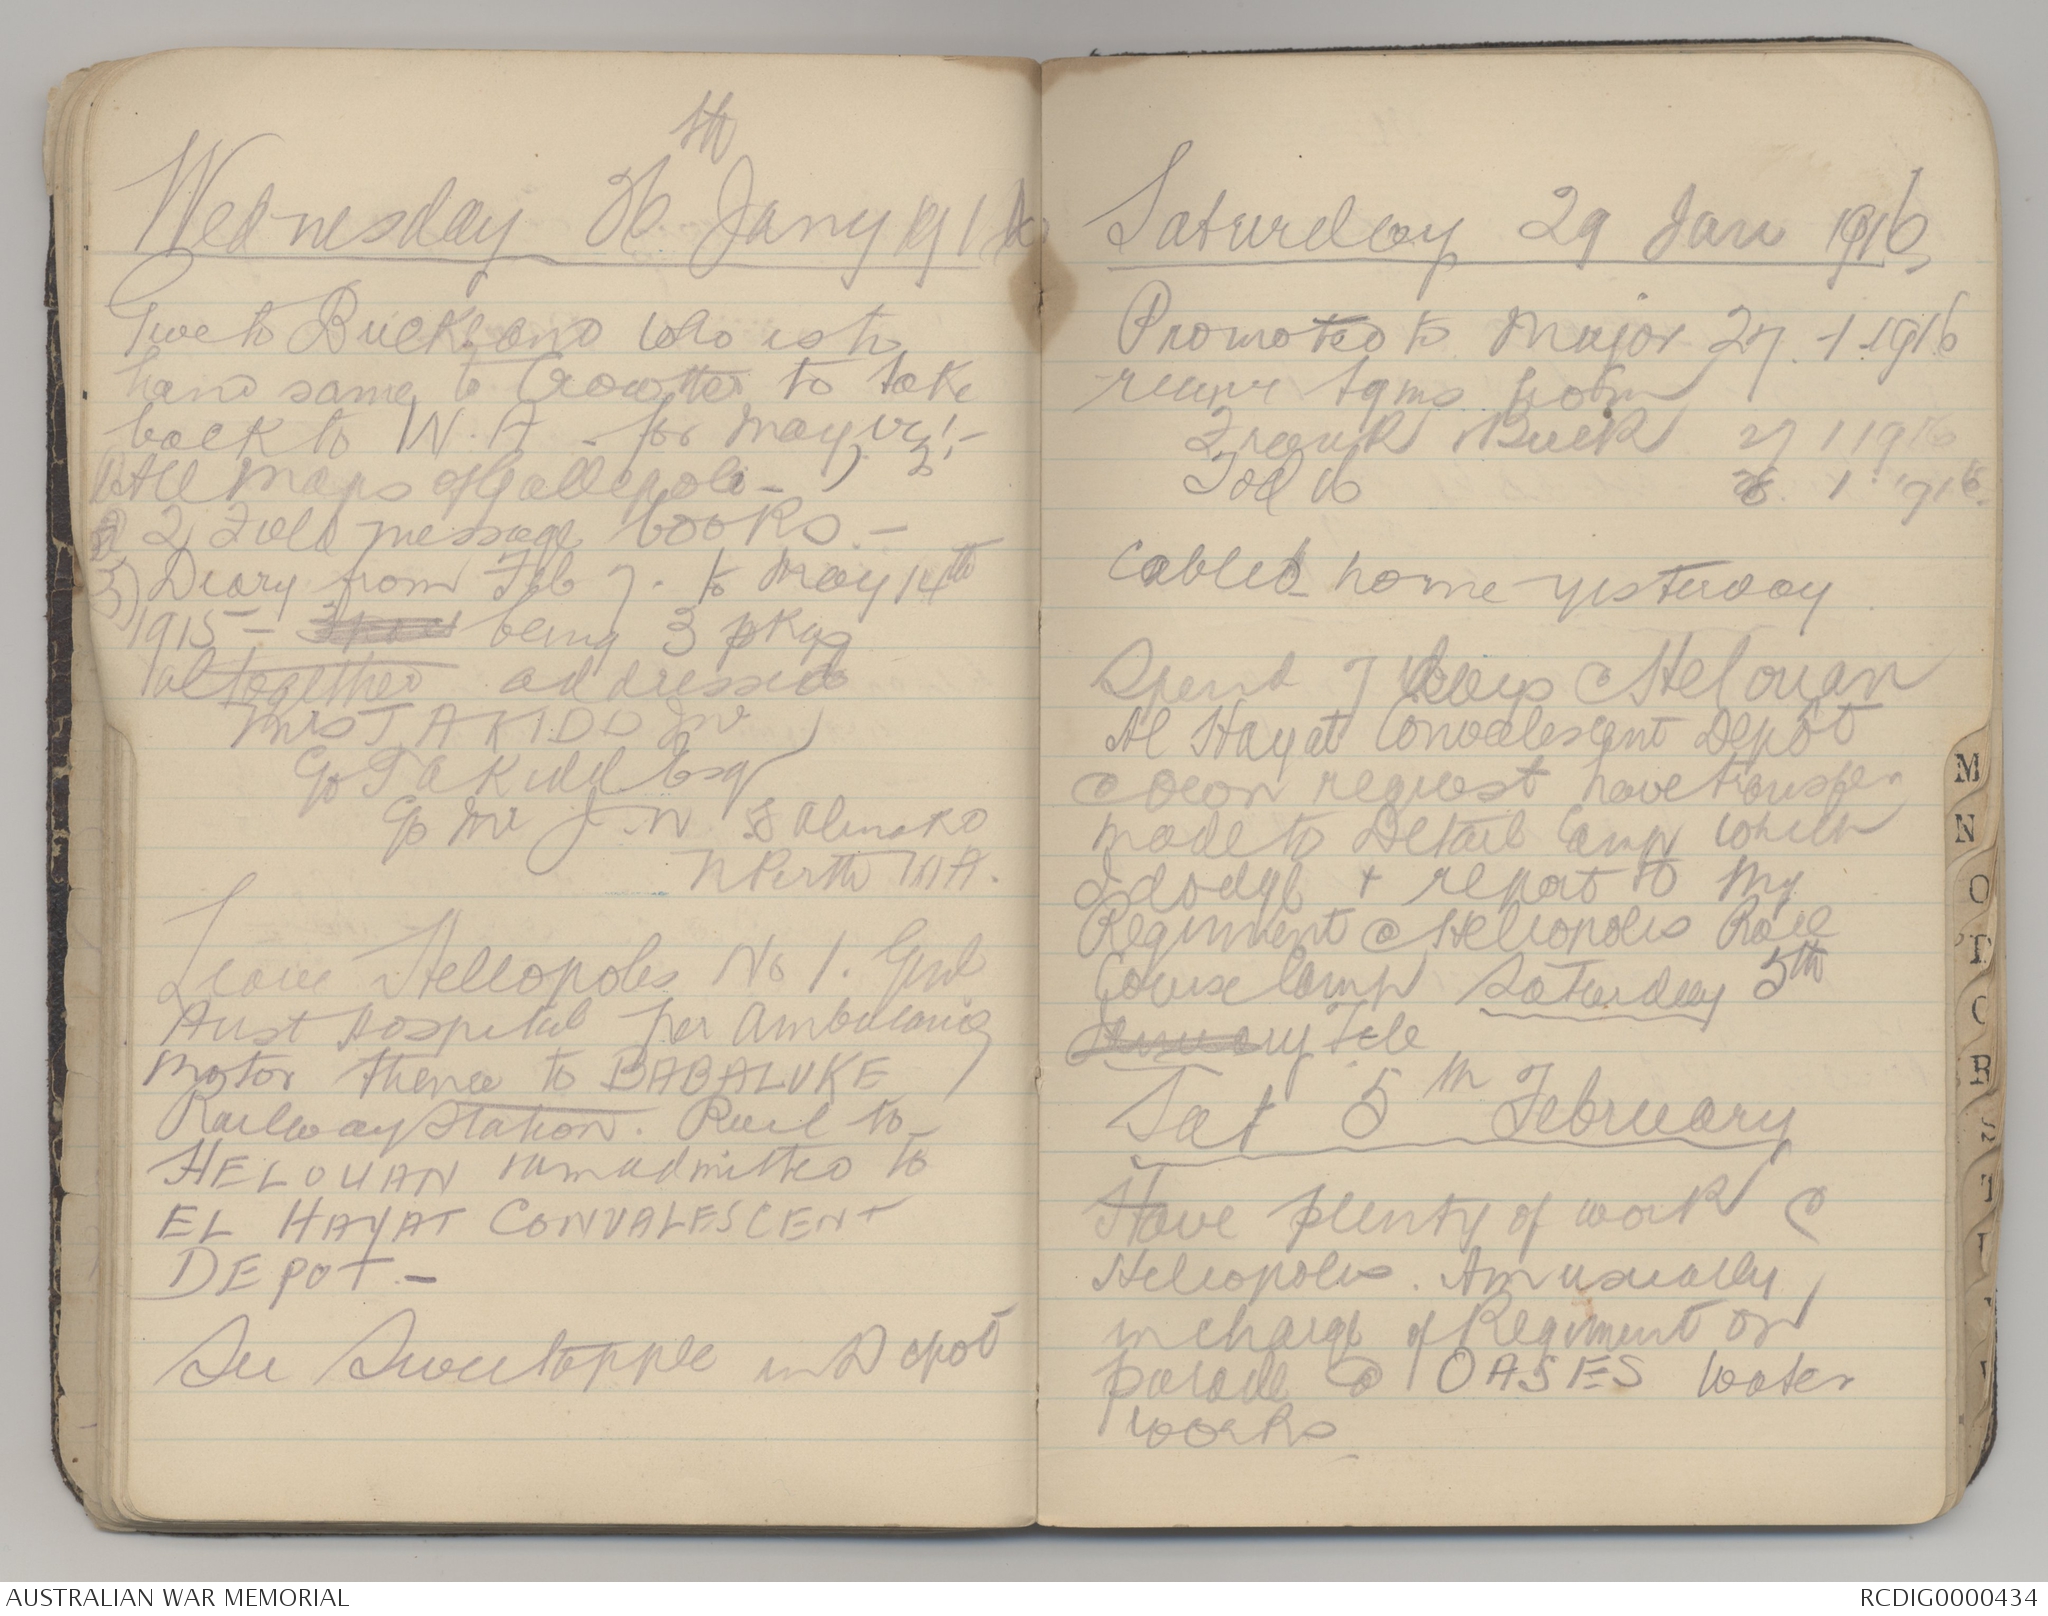 Wednesday 26th Jany 1916
Give to Buckland who is to
hand same to Crowther to take
back to W.A - for May, viz:-
1) All Maps of Gallepoli -
2) 2 Field message books -
3) Diary from Feb 7. to May 14th
1915 - being 3 pkgs
altogether addressed
Mrs T A KIDD Jnr
C/o T A Kidd Esq
C/o Mr J. W
N Perth WA.
Leave Heliopolis No 1. Genl
Aust Hospital per Ambulance
Motor thence to BABALUKE
Railway Station. Rail to
HELOUAN & am admitted to
EL HAYAT CONVALESCENT
DEPOT. -
See Sweetapple in Depot
Saturday 29 Jan 1916
Promoted to Major 27.1.1916
receive tgms from
Frank Buck 27 1 1916
Todd 1 1916.
Cabled home yesterday
Spent 7 days @ Helouan
Al Hayat Convalescent Depot
@ own request have transfer
made to Detail Camp which
I dodge + report to My
Regiment @ Heliopolis Race
Course Camp Saturday 5th
January Feb
Sat 5th February
Have plenty of work @
Heliopolis. Am usually
in charge of Regiment on
parade @ OASES Water
works
MEMO
M
N
O
P
Q
R
S
T
AUSTRALIAN WAR MEMORIAL
RCDIG0000434